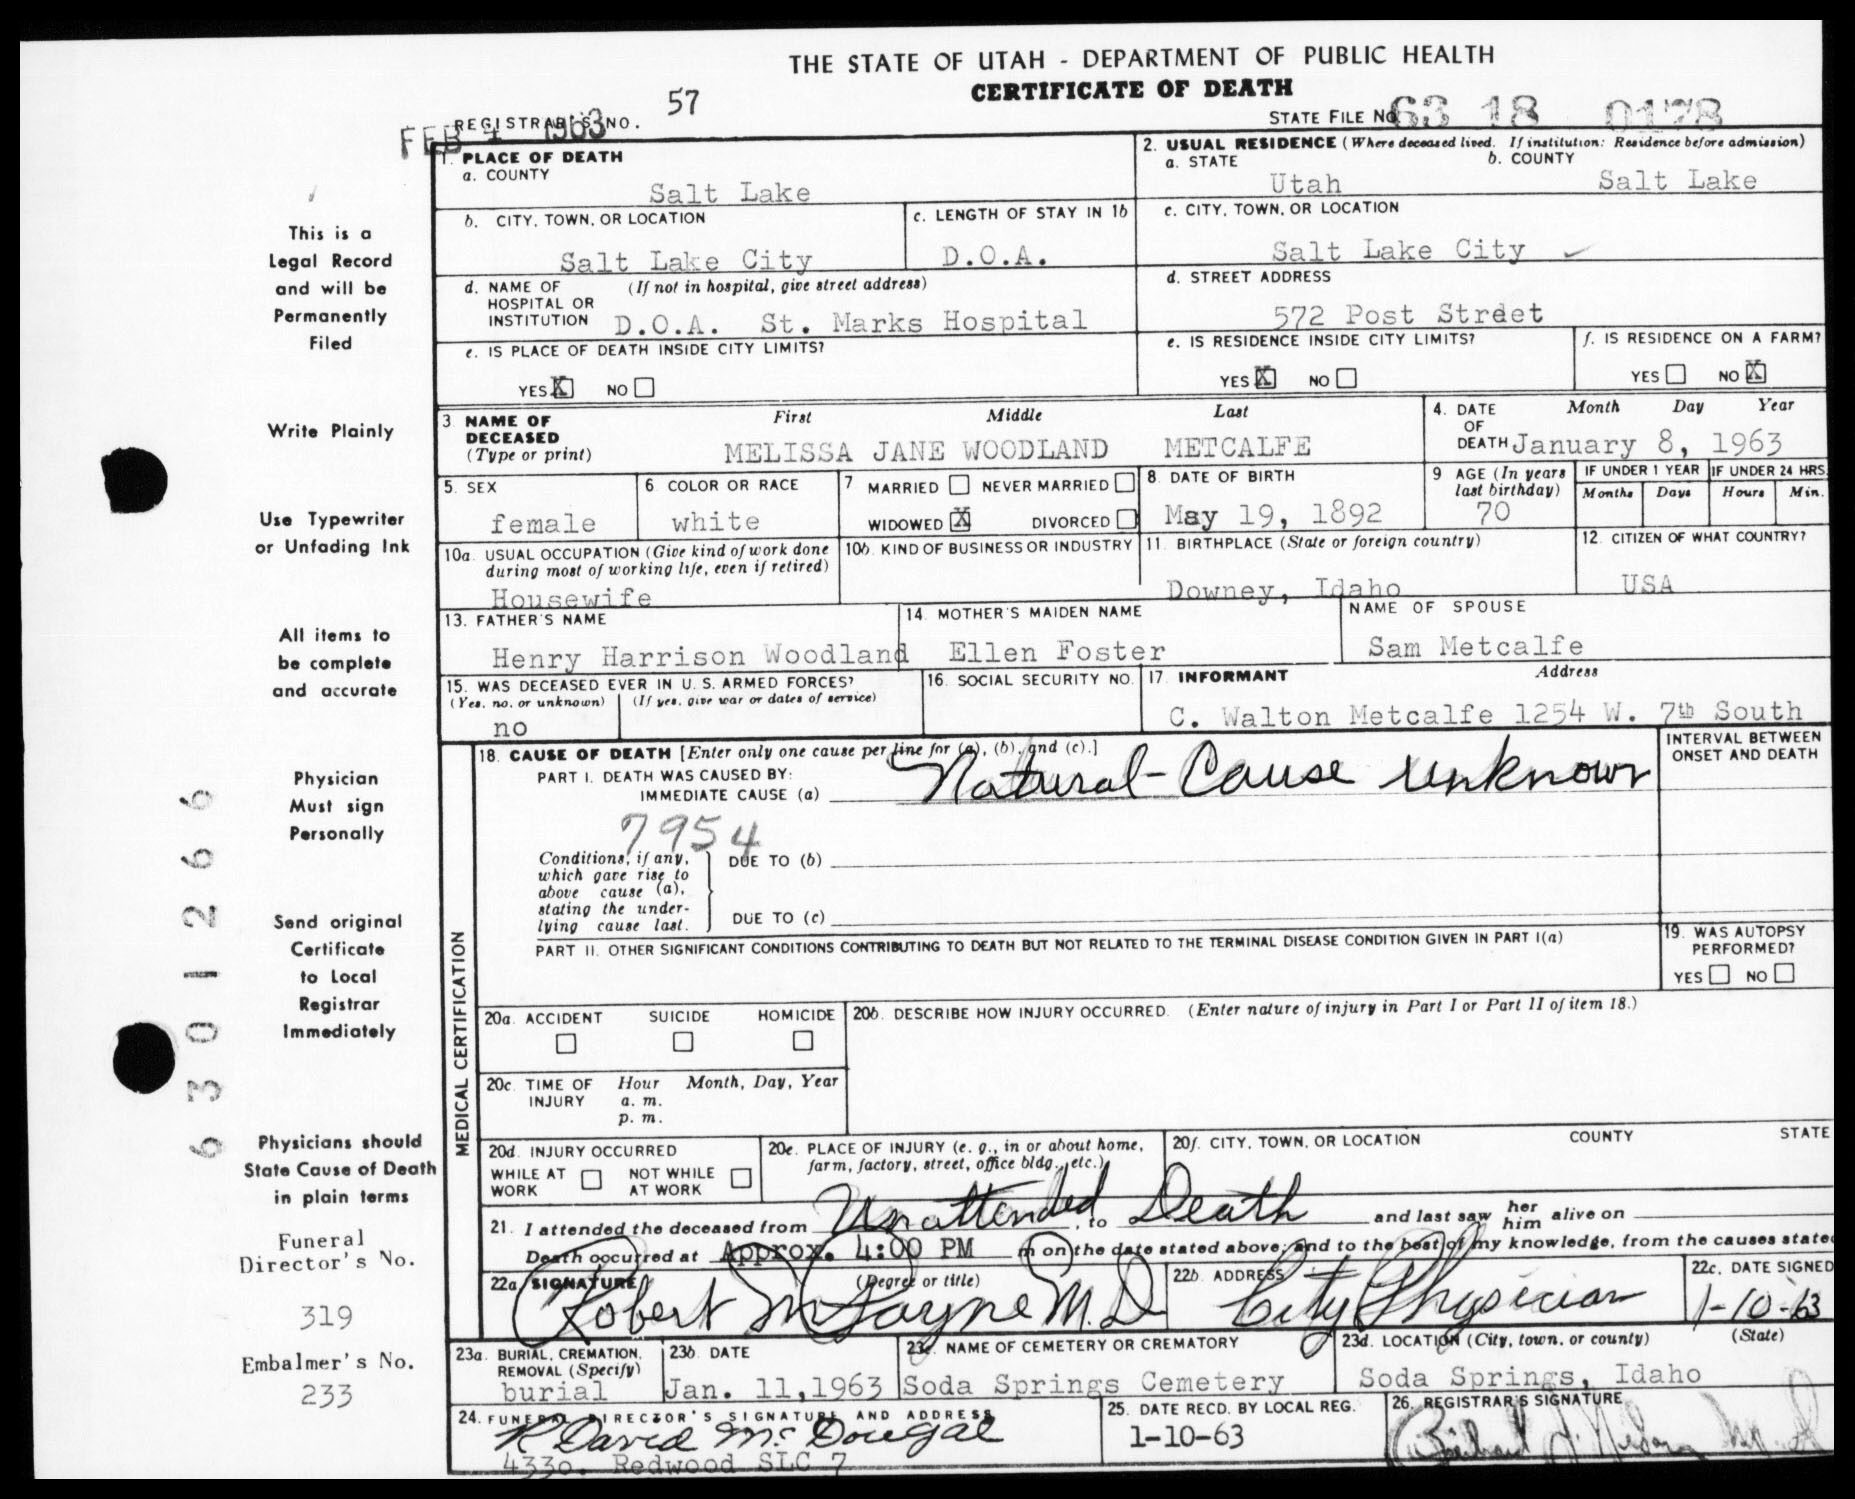 THE STATE OF UTAH - DEPARTMENT OF PUBLIC HEALTH
CERTIFICATE OF DEATH
REGISTRAR'S NO. 57
FEB 4 1963
STATE FILE NO. 63 18 0178
1. PLACE OF DEATH
a. COUNTY
Salt Lake
2. USUAL RESIDENCE (Where deceased lived. If institution: Residence before admission)
a. STATE b. COUNTY
Utah Salt Lake
b. CITY, TOWN, OR LOCATION
Salt Lake City
c. LENGTH OF STAY IN 1b
D.O.A.
c. CITY, TOWN, OR LOCATION
Salt Lake City
d. NAME OF (If not in hospital, give street address)
HOSPITAL OR
INSTITUTION D.O.A. St. Marks Hospital
d. STREET ADDRESS
572 Post Street
e. IS PLACE OF DEATH INSIDE CITY LIMITS?
YES X NO
e. IS RESIDENCE INSIDE CITY LIMITS?
YES X NO
f. IS RESIDENCE ON A FARM?
YES NO X
3 NAME OF First Middle Last
DECEASED
(Type or print) MELISSA JANE WOODLAND METCALFE
4. DATE Month Day Year
OF
DEATH January 8, 1963
5. SEX
female
6 COLOR OR RACE
white
7 MARRIED NEVER MARRIED
WIDOWED X DIVORCED
8. DATE OF BIRTH
May 19, 1892
9 AGE (In years
last birthday)
70
IF UNDER 1 YEAR
Months Days
IF UNDER 24 HRS.
Hours Min.
10a. USUAL OCCUPATION (Give kind of work done
during most of working life, even if retired)
Housewife
10b. KIND OF BUSINESS OR INDUSTRY
11. BIRTHPLACE (State or foreign country)
Downey, Idaho
12. CITIZEN OF WHAT COUNTRY?
USA
13. FATHER'S NAME
Henry Harrison Woodland
14. MOTHER'S MAIDEN NAME
Ellen Foster
NAME OF SPOUSE
Sam Metcalfe
15. WAS DECEASED EVER IN U.S. ARMED FORCES?
(Yes, no, or unknown) (If yes, give war or dates of service)
no
16. SOCIAL SECURITY NO.
17. INFORMANT Address
C. Walton Metcalfe 1254 W. 7th South
MEDICAL CERTIFICATION
18. CAUSE OF DEATH [Enter only one cause per line for (a), (b), and (c).]
PART I. DEATH WAS CAUSED BY:
IMMEDIATE CAUSE (a) Natural - Cause unknown
INTERVAL BETWEEN
ONSET AND DEATH
7954
Conditions, if any,
which gave rise to
above cause (a),
stating the under-
lying cause last.
DUE TO (b)
DUE TO (c)
PART II. OTHER SIGNIFICANT CONDITIONS CONTRIBUTING TO DEATH BUT NOT RELATED TO THE TERMINAL DISEASE CONDITION GIVEN IN PART I(a)
19. WAS AUTOPSY
PERFORMED?
YES NO
20a. ACCIDENT SUICIDE HOMICIDE
20b. DESCRIBE HOW INJURY OCCURRED. (Enter nature of injury in Part I or Part II of item 18.)
20c. TIME OF Hour Month, Day, Year
INJURY a. m.
p. m.
20d. INJURY OCCURRED
WHILE AT NOT WHILE
WORK AT WORK
20e. PLACE OF INJURY (e. g., in or about home,
farm, factory, street, office bldg., etc.)
20f. CITY, TOWN, OR LOCATION COUNTY STATE
21. I attended the deceased from Unattended, to Death and last saw her him alive on
Death occurred at Approx. 4:00 PM m on the date stated above; and to the best of my knowledge, from the causes stated
22a. SIGNATURE (Degree or title)
Robert M Payne M.D
22b. ADDRESS
City Physician
22c. DATE SIGNED
1-10-63
23a. BURIAL, CREMATION,
REMOVAL (Specify)
burial
23b. DATE
Jan. 11,1963
23c. NAME OF CEMETERY OR CREMATORY
Soda Springs Cemetery
23d. LOCATION (City, town, or county) (State)
Soda Springs, Idaho
24. FUNERAL DIRECTOR'S SIGNATURE AND ADDRESS
R David McDougal
4330. Redwood SLC 7
25. DATE RECD. BY LOCAL REG.
1-10-63
26. REGISTRAR'S SIGNATURE
This is a
Legal Record
and will be
Permanently
Filed
Write Plainly
Use Typewriter
or Unfading Ink
All items to
be complete
and accurate
Physician
Must sign
Personally
Send original
Certificate
to Local
Registrar
Immediately
Physicians should
State Cause of Death
in plain terms
Funeral
Director's No.
319
Embalmer's No.
233
6301266